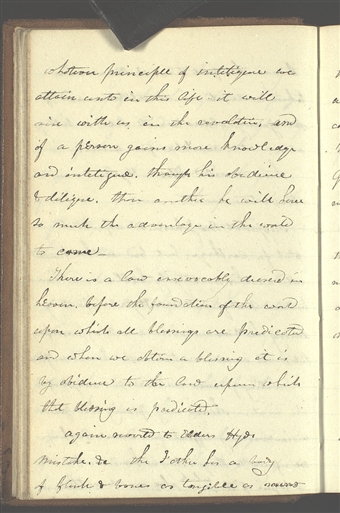 whatever principle of inteligence we
attain unto in this life it will
rise with us in the revolution, and
if a person gains more knowledge
and inteligence. through his obedience
& diligence. than another he will have
so much the advantage in the world
to come—
There is a law irrevocably decreed in
heaven, before the foundation of the world
upon which all blessings are predicated
and when we obtain a blessing it is
by obedience to the law upon which
that blessing is predicated.
again reverted to Elders Hyde
mistake. &c the Father has a body
of flesh & bones as tangible as